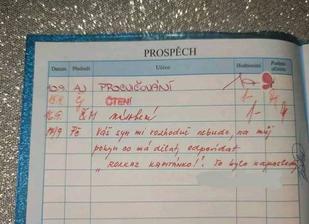 PROSPĚCH
Datum Předmět Učivo Hodnocení Podpis učitele
10.9. AJ PROCVIČOVÁNÍ 1
ČJ ČTENÍ 1-
ČM násobení 1-
17/9 Tv Váš syn mi rozhodně nebude, na můj
pokyn co má dělat, odpovídat
„ROZKAZ KAPITÁNKO!" To bylo naposledy